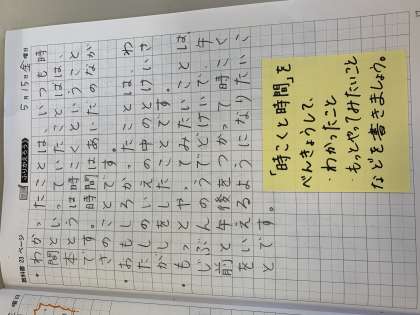 5月15日 金曜日
ふりかえろう
教科書 23 ページ
・わかったことは、いつも時
間といっていたことばは、
本とうは時こくということ
です。時間はあいだのなが
さのことです。
・おもしろかったことは、わ
たしのいえの中のとけいさ
がしをしたことです。
・もっとやってみたいことは
じぶんのうでどけいで、午
前と午後をつかって時こく
をいえるようになりたいこ
とです。
「時こくと時間」を
べんきょうして、
・わかったこと
・もっとやってみたいこと
などを書きましょう。